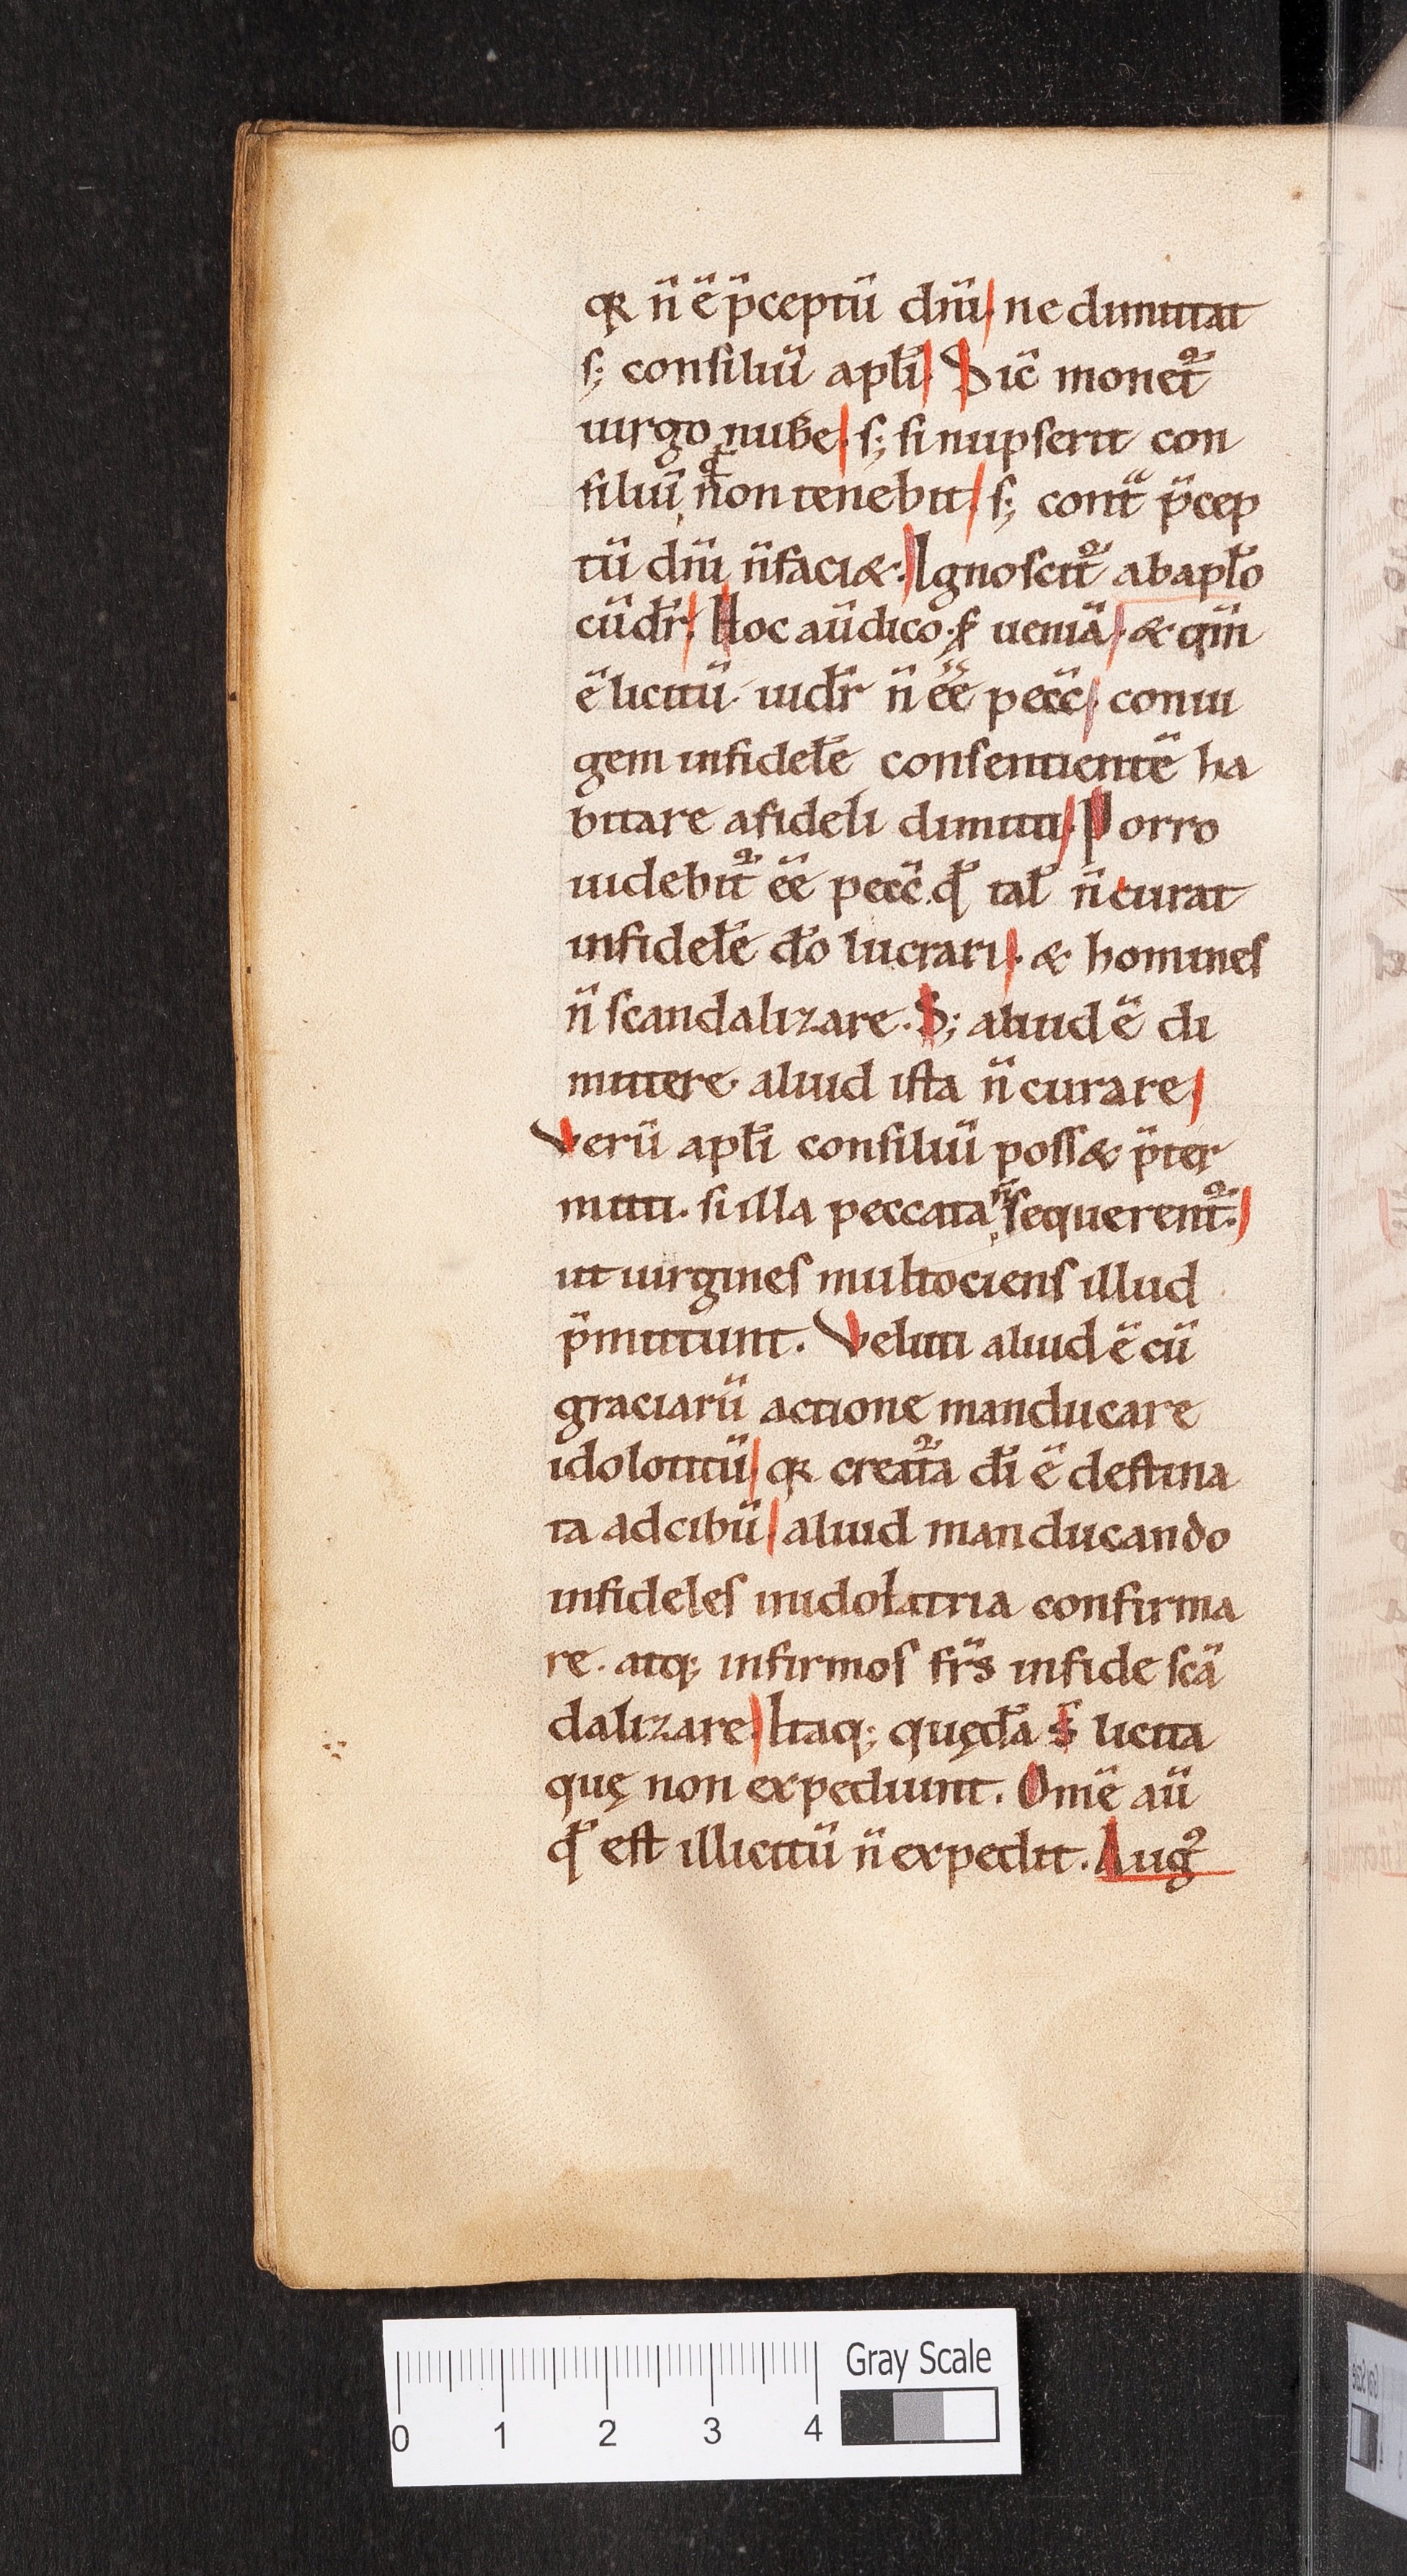 qꝛ n̄ ē p̄ceptū dn̄i. ne dimittat
ſ; conſiliū apłi. Sic monet᷑
uirgo nubē. ſ; ſi nupſerit con
ſiliū non tenebit. ſ; contᵃ p̄cep
tū dn̄i n̄ faci&. Ignoſcit᷑ ab apło
cū dr̄. Hoc aū dico ſ̄ ueniā. & qm̄
ē licitū. uidr̄ n̄ ēē pecc̄. coniu
gem infidełe conſentientē ha
bitare a fideli dimitti. Porro
uidebit᷑ ēē pecc̄. qđ tał n̄ curat
infidełe đo lucrari. & homineſ
n̄ ſcandalizare. S; aliud ē di
mittere. aliud iſta n̄ curare
Verū apłi conſiliū poſſ& p̄ter
mitti. ſi illa peccata n̄ ſequerent᷑.
ut uirgineſ multocienſ illud
p̄mittunt. Veluti aliud ē cū
graciarū actione manducare
idolotitū qꝛ creat᷑a đi ē deſtina
ta ad cibū aliud manducando
infideleſ in idolatria confirma
re. atq; infirmoſ fr̄s in fide ſcā
dalizare. Itaq; quędā s̄ licita
quę non expediunt. Om̄e aū
qđ eſt illicitū n̄ expedit. Augꝰ
0 1 2 3 4 Gray Scale